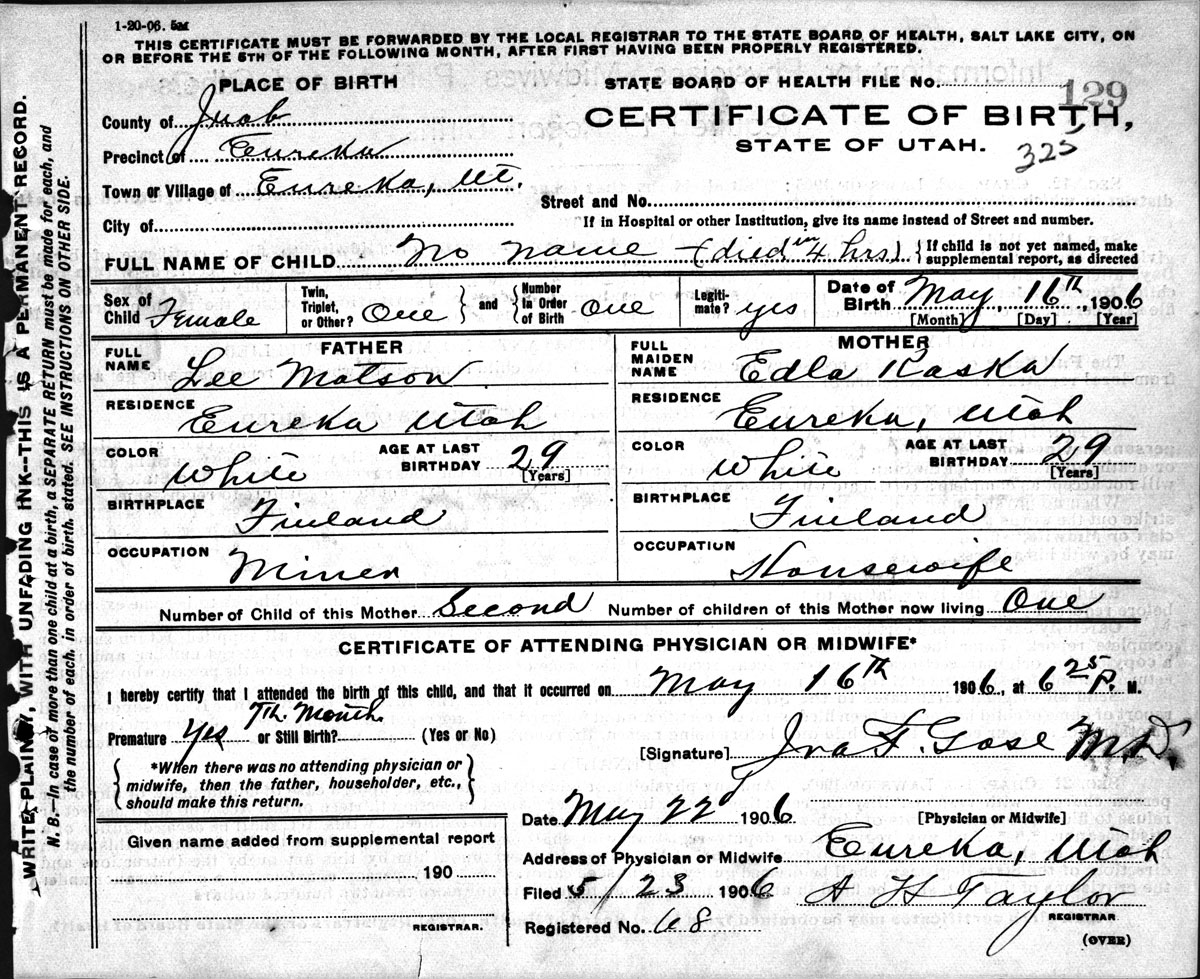 1-20-06. 5M
THIS CERTIFICATE MUST BE FORWARDED BY THE LOCAL REGISTRAR TO THE STATE BOARD OF HEALTH, SALT LAKE CITY, ON
OR BEFORE THE 5TH OF THE FOLLOWING MONTH, AFTER FIRST HAVING BEEN PROPERLY REGISTERED.
PLACE OF BIRTH
STATE BOARD OF HEALTH FILE No. 129
County of Juab
CERTIFICATE OF BIRTH,
Precinct of Eureka
STATE OF UTAH. 325
Town or Village of Eureka, Ut.
Street and No.
City of
If in Hospital or other Institution, give its name instead of Street and number.
FULL NAME OF CHILD No name - (died in 4 hrs) { If child is not yet named, make supplemental report, as directed
Sex of Child Female
Twin, Triplet, or Other? One } and { Number in Order of Birth One
Legitimate? yes
Date of Birth May 16th, 1906
[Month] [Day] [Year]
FATHER
FULL NAME Lee Matson
RESIDENCE Eureka Utah
COLOR White AGE AT LAST BIRTHDAY 29 [Years]
BIRTHPLACE Finland
OCCUPATION Miner
MOTHER
FULL MAIDEN NAME Edla Kaska
RESIDENCE Eureka, Utah
COLOR White AGE AT LAST BIRTHDAY 29 [Years]
BIRTHPLACE Finland
OCCUPATION Housewife
Number of Child of this Mother Second Number of children of this Mother now living One
CERTIFICATE OF ATTENDING PHYSICIAN OR MIDWIFE*
I hereby certify that I attended the birth of this child, and that it occurred on May 16th 1906, at 6 25 P. M.
7th. Month
Premature Yes or Still Birth? (Yes or No)
[Signature] Ira F. Gose M.D.
{ *When there was no attending physician or
midwife, then the father, householder, etc.,
should make this return. }
Date May 22d 1906 [Physician or Midwife]
Given name added from supplemental report
190
REGISTRAR.
Address of Physician or Midwife Eureka, Utah
Filed 5/23 1906 A H Taylor
REGISTRAR
Registered No. 68
(OVER)
WRITE PLAINLY, WITH UNFADING INK--THIS IS A PERMANENT RECORD.
N. B.—In case of more than one child at a birth, a SEPARATE RETURN must be made for each, and
the number of each, in order of birth, stated. SEE INSTRUCTIONS ON OTHER SIDE.